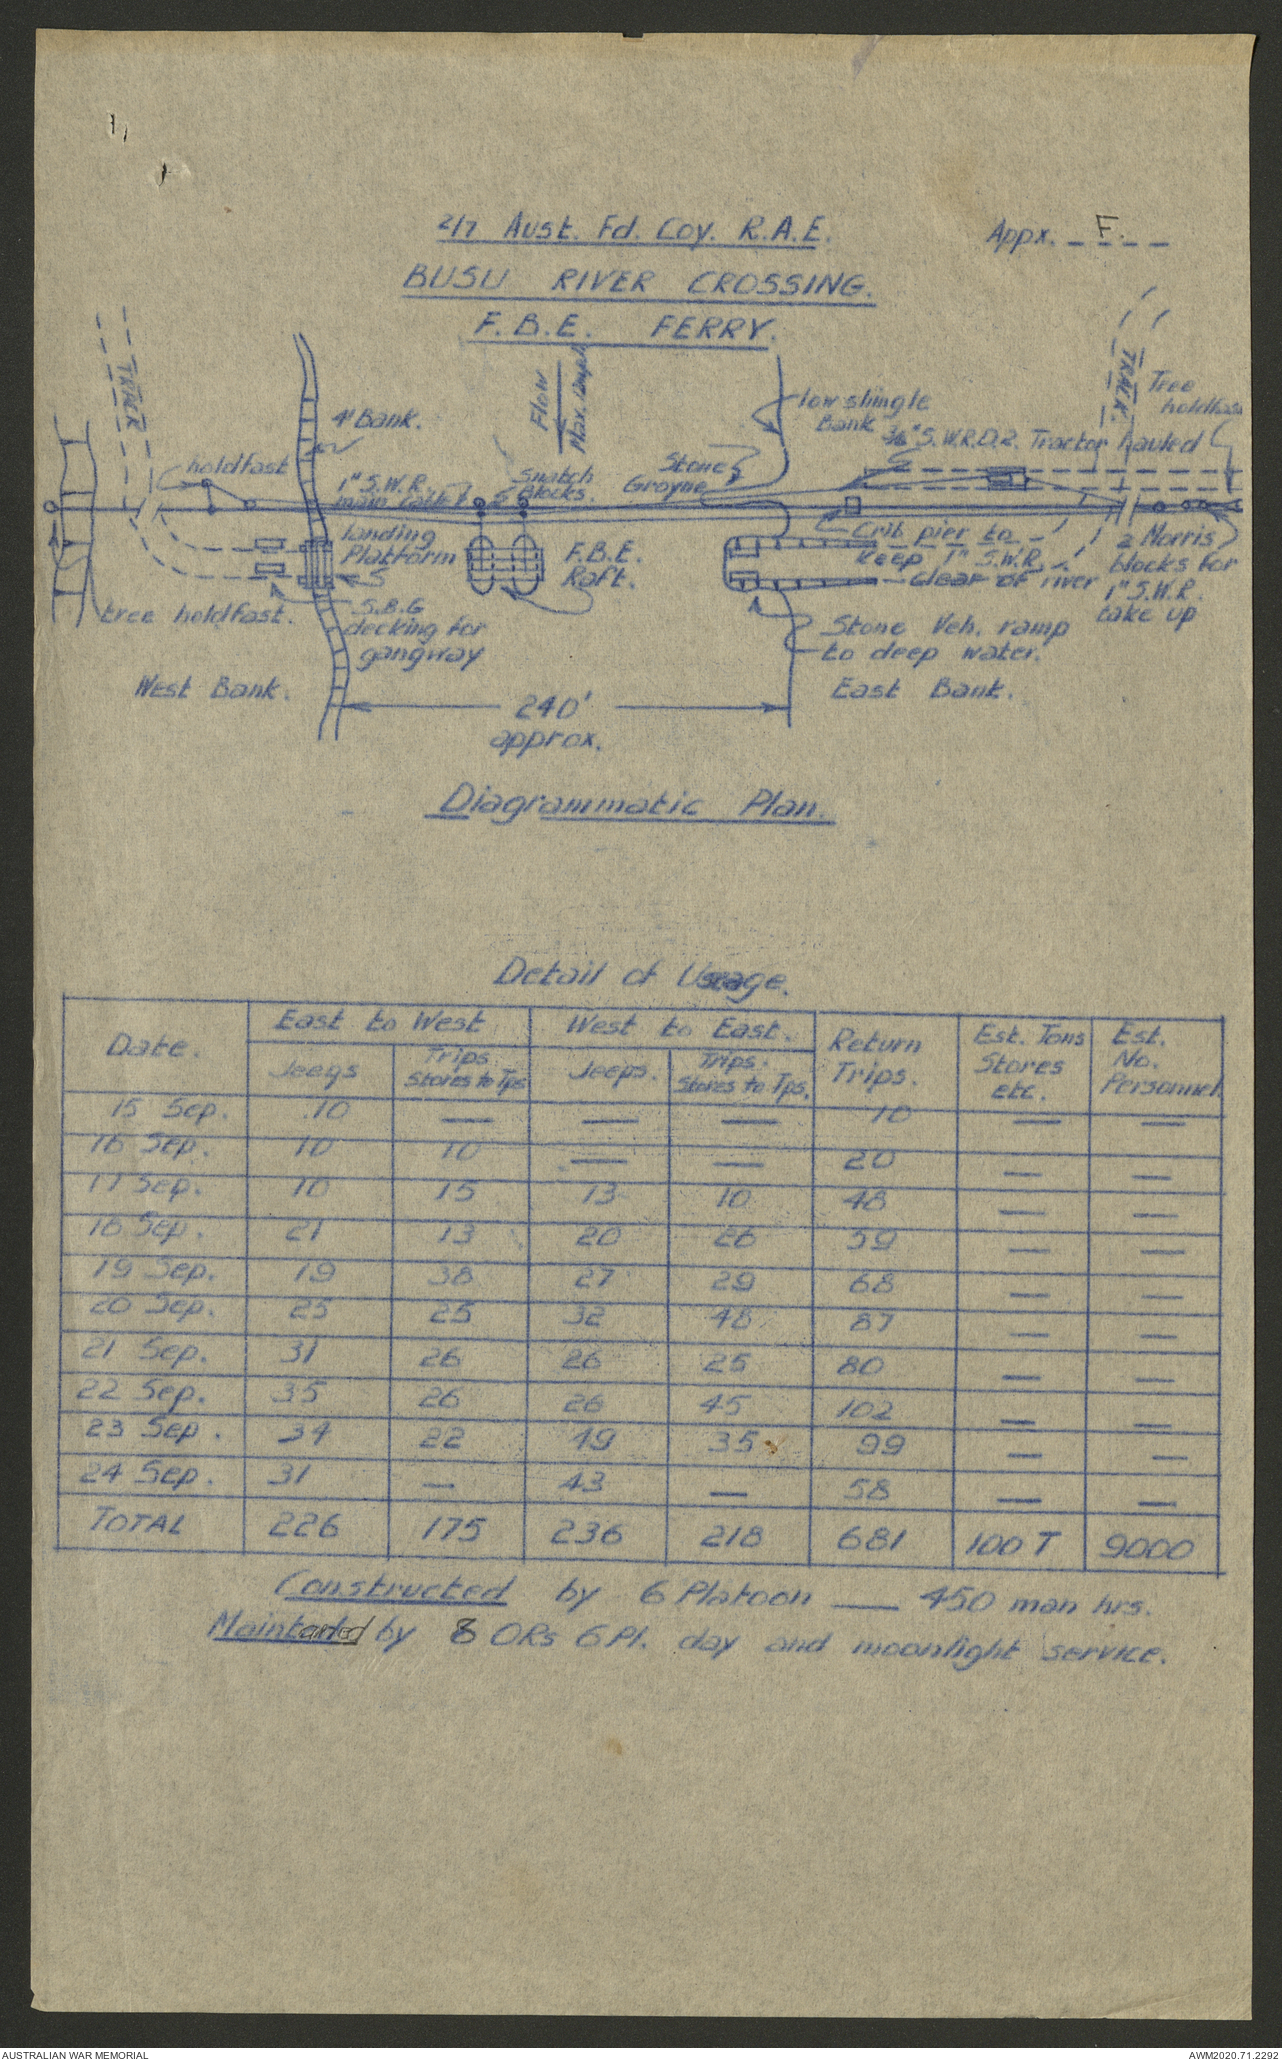 2/7 Aust. Fd. Coy. R.A.E.
Appx. F.
BUSU RIVER CROSSING.
F.B.E. FERRY.
TRACK
Flow
Max.
4' Bank.
low shingle
Bank
TRACK.
Tree
holdfast
3/8" S.W.R.D.2. Tractor hauled
holdfast
1" S.W.R.
main cable
Snatch
Blocks.
Stone
Groyne
landing
Platform
F.B.E.
Raft.
Crib pier to
keep 1" S.W.R.
clear of river
2 Morris
blocks for
1" S.W.R.
take up
tree holdfast.
S.B.G
decking for
gangway
Stone Veh. ramp
to deep water.
West Bank.
East Bank.
240'
approx.
Diagrammatic Plan.
Detail of Useage.
Date. East to West West to East. Return Trips. Est. Tons Stores etc. Est. No. Personnel
Jeeps Trips Stores to Tps Jeeps. Trips. Stores to Tps.
15 Sep. 10 — — — 10 — —
16 Sep. 10 10 — — 20 — —
17 Sep. 10 15 13 10 48 — —
18 Sep. 21 13 20 26 59 — —
19 Sep. 19 38 27 29 68 — —
20 Sep. 25 25 32 48 87 — —
21 Sep. 31 26 26 25 80 — —
22 Sep. 35 26 26 45 102 — —
23 Sep. 34 22 49 35 99 — —
24 Sep. 31 — 43 — 58 — —
TOTAL 226 175 236 218 681 100 T 9000
Constructed by 6 Platoon — 450 man hrs.
Maintained by 8 ORs 6 Pl. day and moonlight service.
AUSTRALIAN WAR MEMORIAL
AWM2020.71.2292